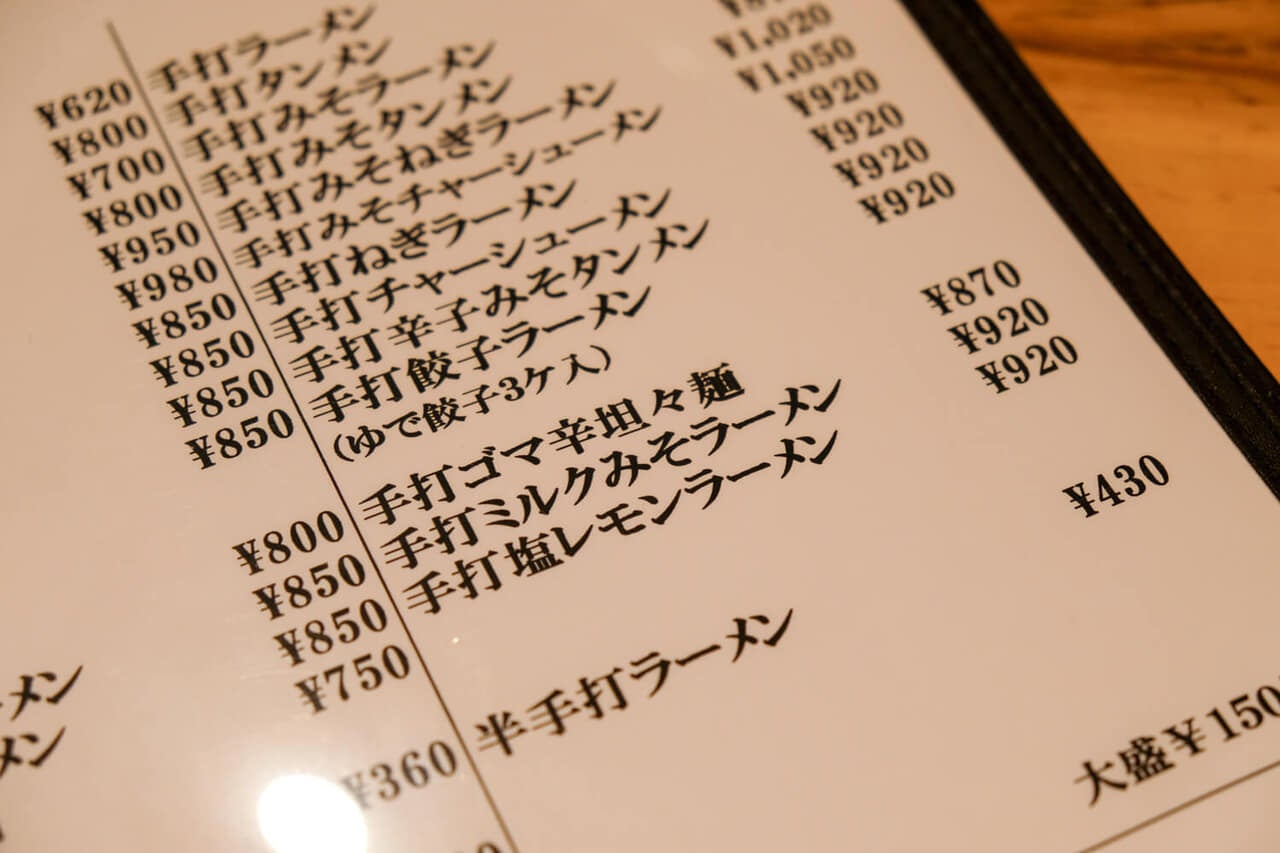 ¥620
¥800
¥700
¥800
¥950
¥980
¥850
¥850
¥850
¥850
¥800
¥850
¥850
¥750
¥360
ーメン
メン
手打ラーメン
手打タンメン
手打みそラーメン
手打みそタンメン
手打みそねぎラーメン
手打みそチャーシューメン
手打ねぎラーメン ¥1,020
手打チャーシューメン ¥1,050
手打辛子みそタンメン ¥920
手打餃子ラーメン ¥920
(ゆで餃子3ケ入)
¥920
¥920
手打ゴマ辛坦々麺 ¥870
手打ミルクみそラーメン ¥920
手打塩レモンラーメン ¥920
半手打ラーメン ¥430
大盛¥150